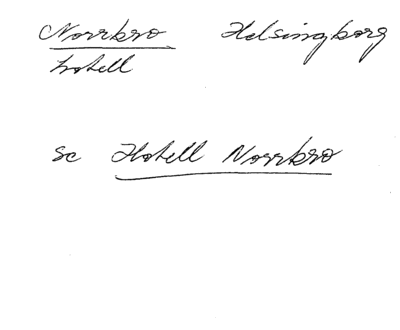 Norrbro Helsingborg
hotell
se Hotell Norrbro